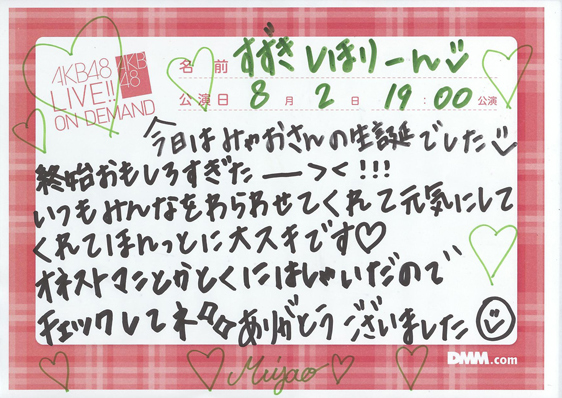 AKB48
LIVE!!
ON DEMAND
AKB
48
名前 すずき しほりーん
公演日 8月2日 19:00公演
今日はみゃおさんの生誕でした
終始おもしろすぎたー><!!!
いつもみんなをわらわせてくれて元気にして
くれてほんっとに大スキです♡
オネストマンとかとくにはしゃいだので
チェックしてネ ありがとうございました
DMM.com
Miyao